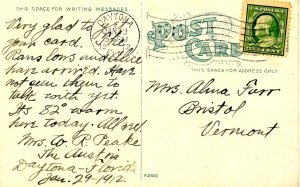 THIS SPACE FOR WRITING MESSAGES
Very glad to
your card.
have arrived. Have
not seen them to
talk with yet.
It's 82° warm
here today. All well
Mrs. W. R. Peake
The Austin
Daytona - Florida
Jan. 29 - 1912
DAYTONA
POST CARD
THIS SPACE FOR ADDRESS ONLY
Mrs. Alma Farr
Bristol
Vermont